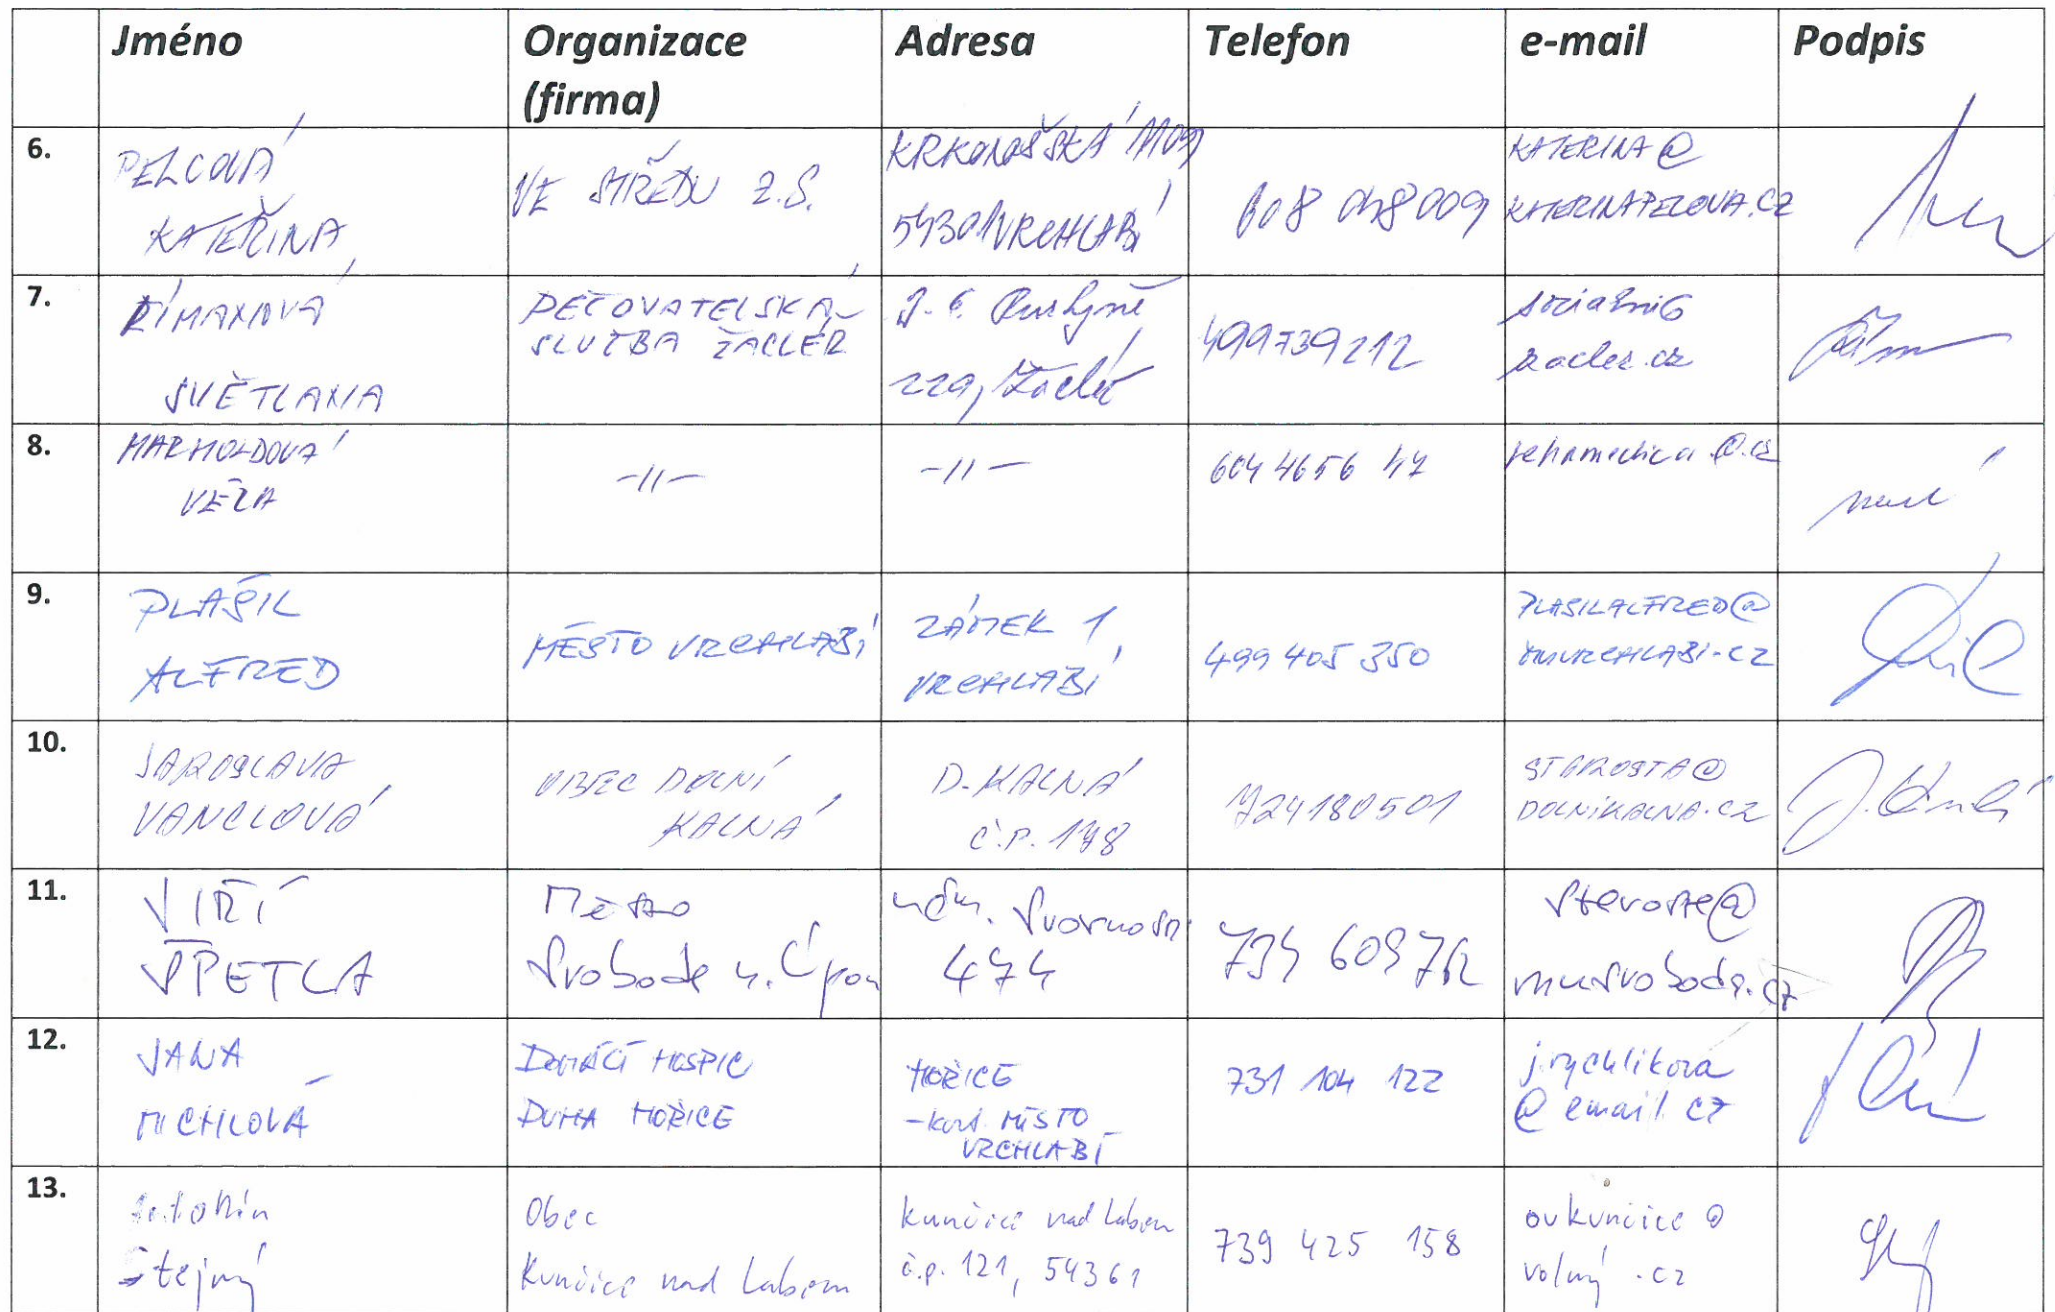 Jméno Organizace (firma) Adresa Telefon e-mail Podpis
6.
PELCOVÁ
KATEŘINA
VE STŘEDU Z.S.
KRKONOŠSKÁ 1109
54301 VRCHLABÍ
608 048 009
KATERINA@
KATERINAPELCOVA.CZ
7.
ŘÍMANOVÁ
SVĚTLANA
PEČOVATELSKÁ
SLUŽBA ŽACLÉŘ
229, Žacléř
499739212
zacler.cz
8.
VĚRA
-11-
-11-
604 4656 47
9.
PLAŠIL
ALFRED
MĚSTO VRCHLABÍ
ZÁMEK 1
VRCHLABÍ
499 405 350
PLASILALFRED@
MUVRCHLABI.CZ
10.
JAROSLAVA
VANCLOVÁ
OBEC DOLNÍ
KALNÁ
D. KALNÁ
Č.P. 178
724180501
STAROSTA@
DOLNIKALNA.CZ
11.
JIŘÍ
ŠPETLA
Město
Svoboda n. Úpou
nám. Svornosti
474
starosta@
musvoboda.cz
12.
JANA
MICHLOVÁ
DOMÁCÍ HOSPIC
DUHA HOŘICE
HOŘICE
-kont. MÍSTO
VRCHLABÍ
731 104 122
j.rychlikova
@ email.cz
13.
Antonín
Štejný
Obec
Kunčice nad Labem
Kunčice nad Labem
č.p. 121, 54361
739 425 158
oukuncice @
volny .cz